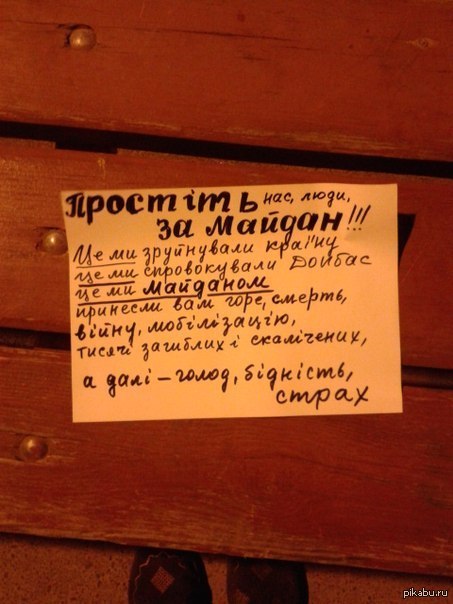 Простіть нас, люди,
за майдан!!!
Це ми зруйнували країну
це ми спровокували Донбас
це ми майданом
принесли вам горе, смерть,
війну, мобілізацію,
тисячі загиблих і скалічених,
а далі – голод, бідність,
страх
pikabu.ru